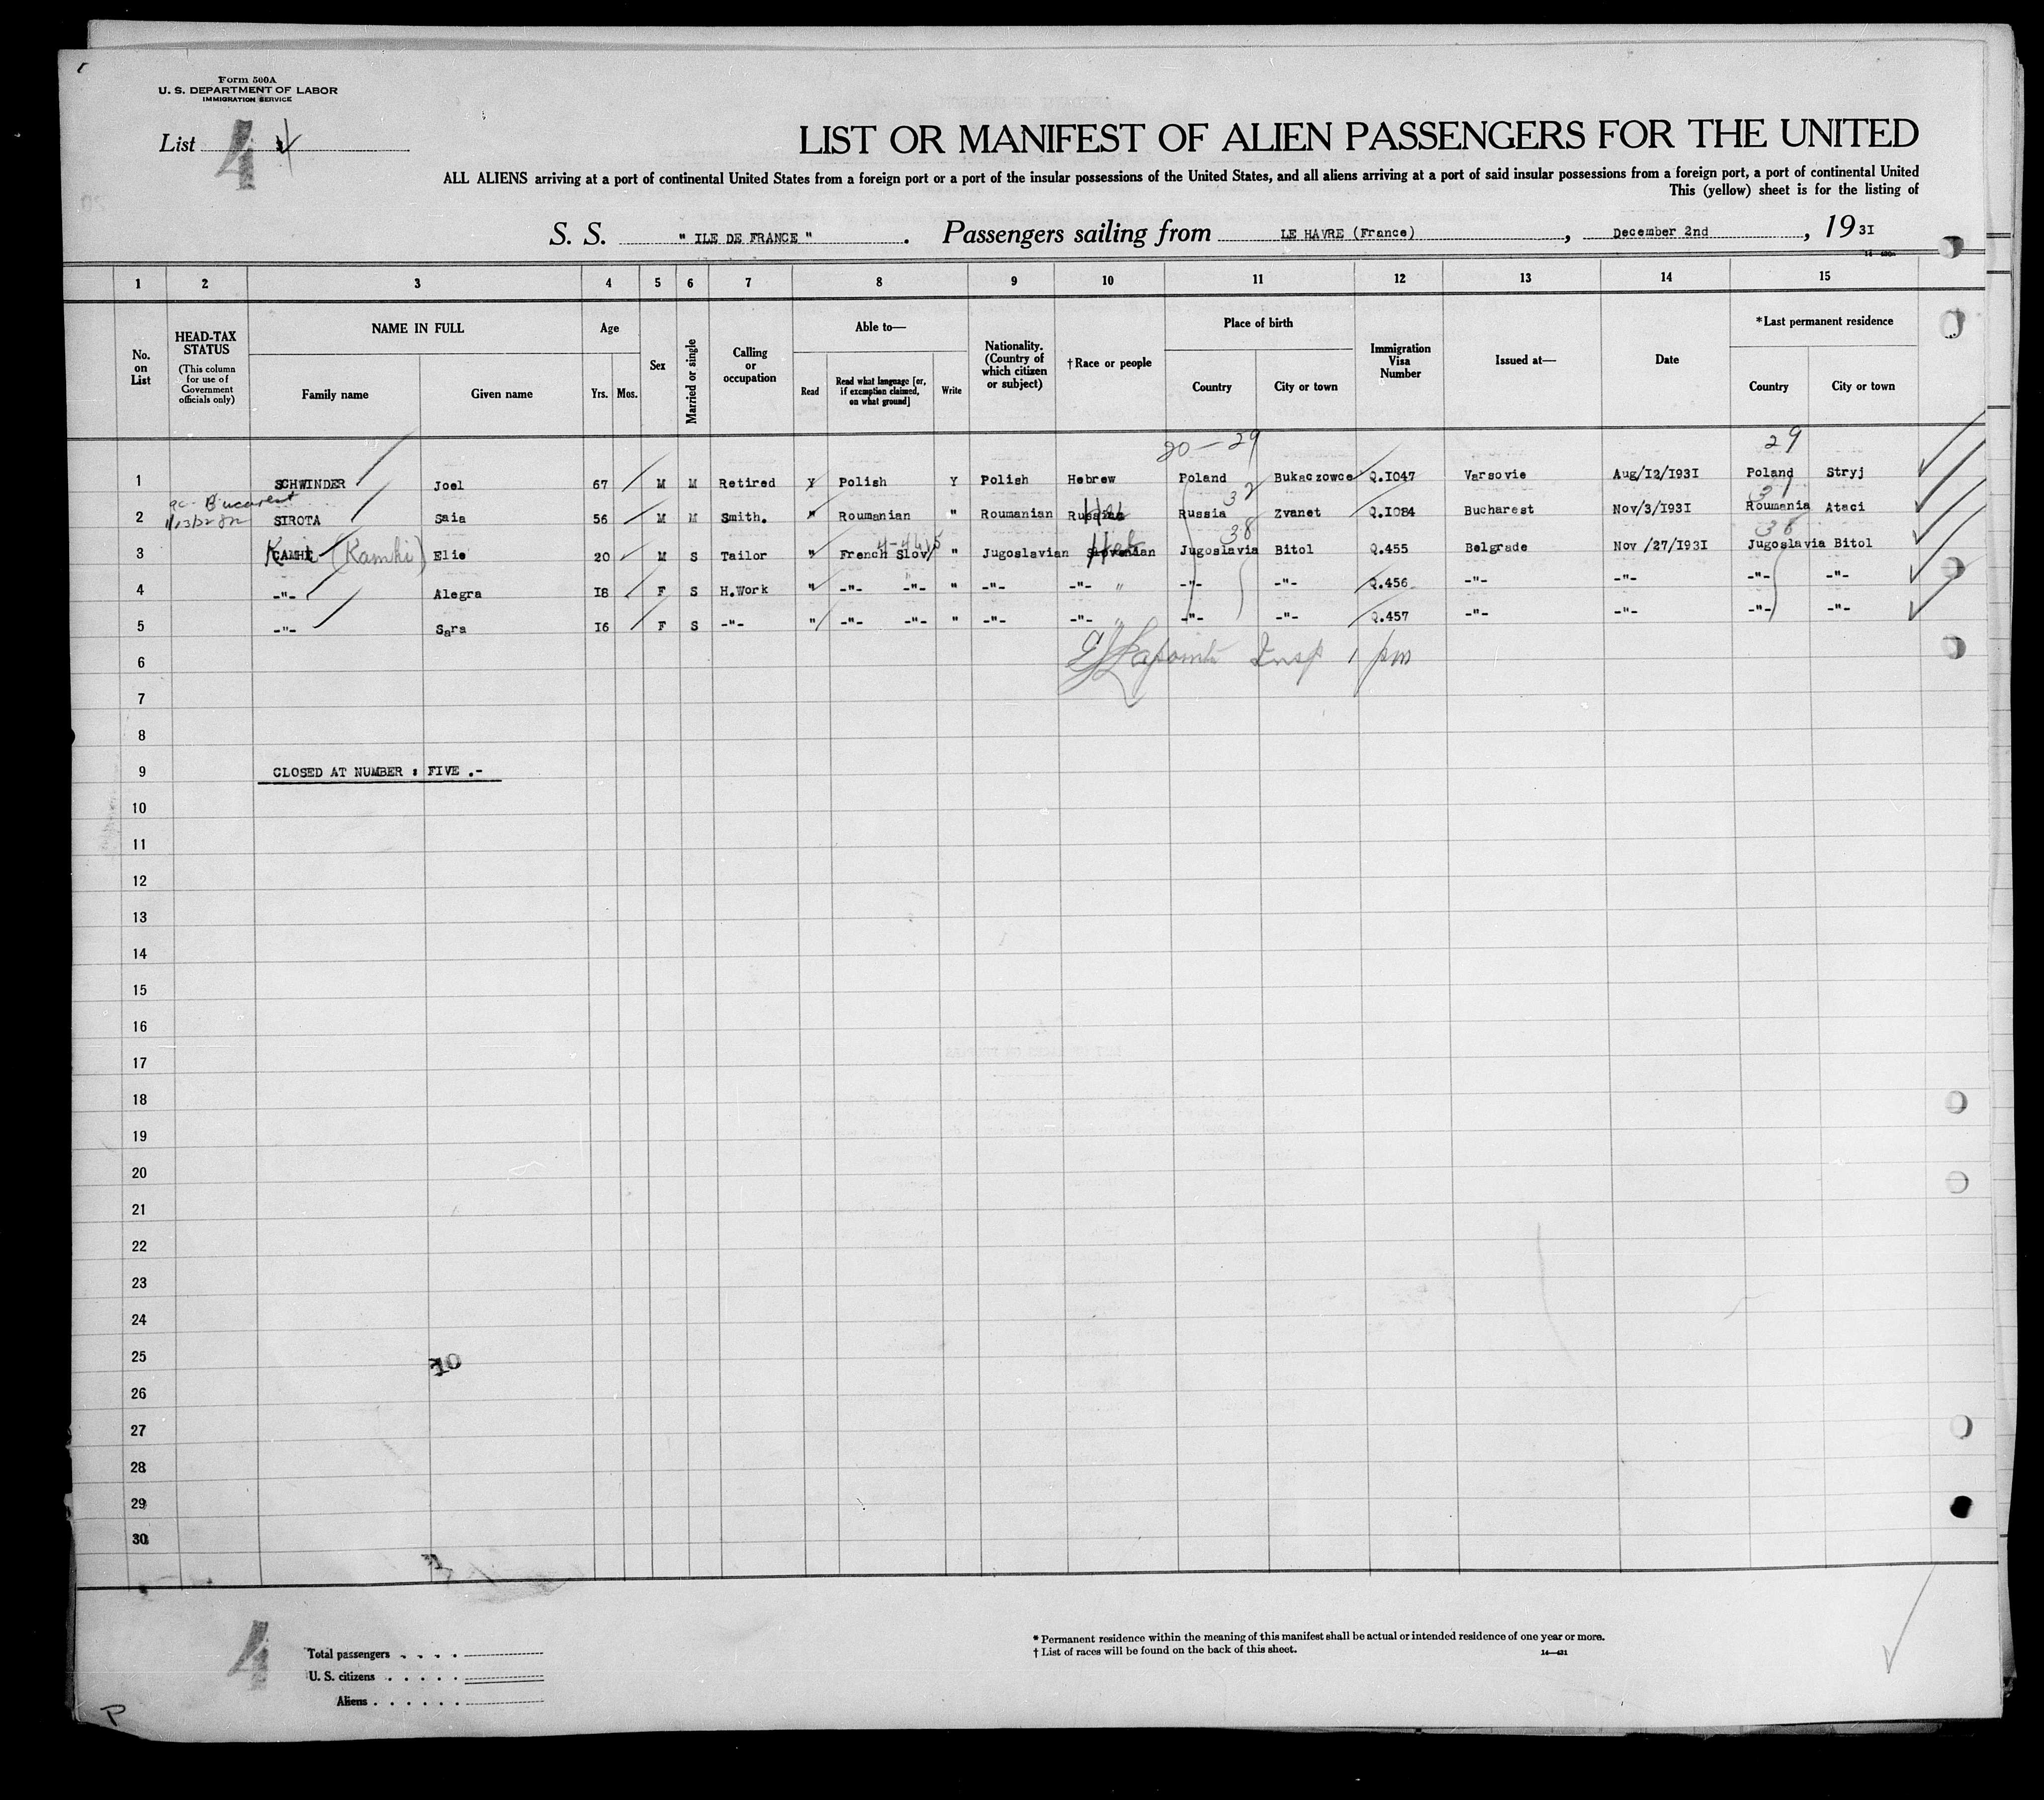 Form 500A
U. S. DEPARTMENT OF LABOR
IMMIGRATION SERVICE
List 4
LIST OR MANIFEST OF ALIEN PASSENGERS FOR THE UNITED
ALL ALIENS arriving at a port of continental United States from a foreign port or a port of the insular possessions of the United States, and all aliens arriving at a port of said insular possessions from a foreign port, a port of continental United
This (yellow) sheet is for the listing of
S. S. " ILE DE FRANCE ". Passengers sailing from LE HAVRE (France), December 2nd, 1931
1 2 3 4 5 6 7 8 9 10 11 12 13 14 15
No. on List
HEAD-TAX STATUS (This column for use of Government officials only)
NAME IN FULL Family name Given name
Age Yrs. Mos.
Sex
Married or single
Calling or occupation
Able to— Read Read what language [or, if exemption claimed, on what ground] Write
Nationality. (Country of which citizen or subject)
†Race or people
Place of birth Country City or town
Immigration Visa Number
Issued at—
Date
*Last permanent residence Country City or town
20 - 29 29
1 SCHWINDER Joel 67 M M Retired Y Polish Y Polish Hebrew Poland Bukaczowce Q.1047 Varsovie Aug/12/1931 Poland Stryj
Bucarest 32 31
2 SIROTA Saia 56 M M Smith. " Roumanian " Roumanian Russian Heb Russia Zvanet Q.1084 Bucharest Nov/3/1931 Roumania Ataci
38 38
3 CAMHI (Kamhi) Elie 20 M S Tailor " French Slov " Jugoslavian Slovenian Heb Jugoslavia Bitol Q.455 Belgrade Nov /27/1931 Jugoslavia Bitol
4 -"- Alegra 18 F S H.Work " -"- -"- " -"- -"- " -"- -"- Q.456 -"- -"- -"- -"-
5 -"- Sara 16 F S -"- " -"- -"- " -"- -"- " -"- -"- Q.457 -"- -"- -"- -"-
6 Lapointe Insp 1 pm
7
8
9 CLOSED AT NUMBER : FIVE .-
10
11
12
13
14
15
16
17
18
19
20
21
22
23
24
25
26
27
28
29
30
4
Total passengers . . . .
U. S. citizens . . . . .
Aliens . . . . . .
* Permanent residence within the meaning of this manifest shall be actual or intended residence of one year or more.
† List of races will be found on the back of this sheet.
14—431
P